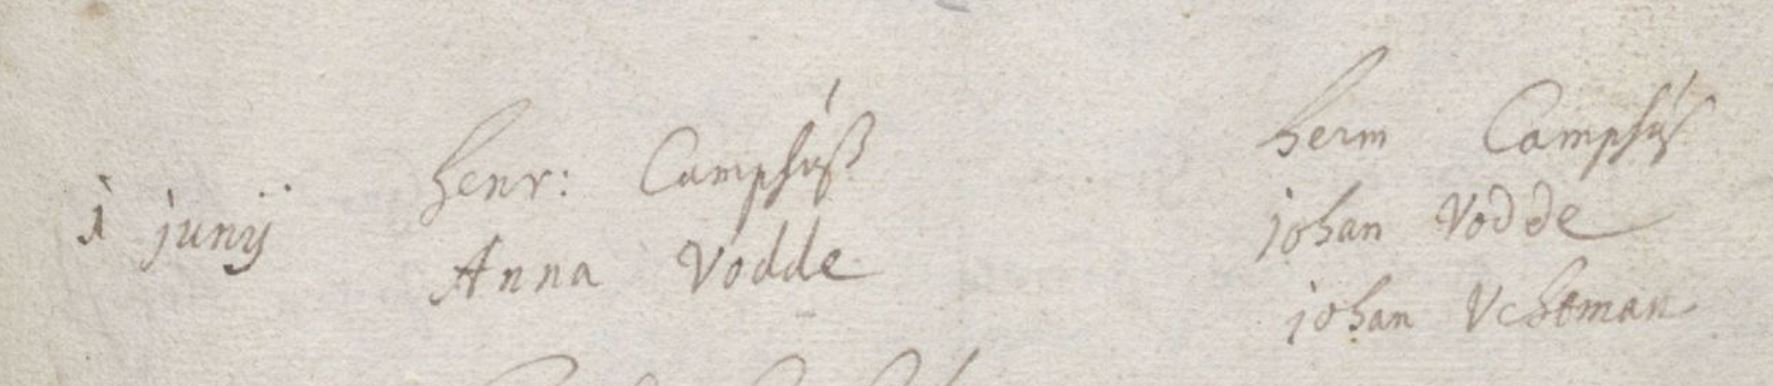 1 junij
Henr: Camphuß
Anna Vodde
Herm Camphuß
johan Vodde
johan Vchtman